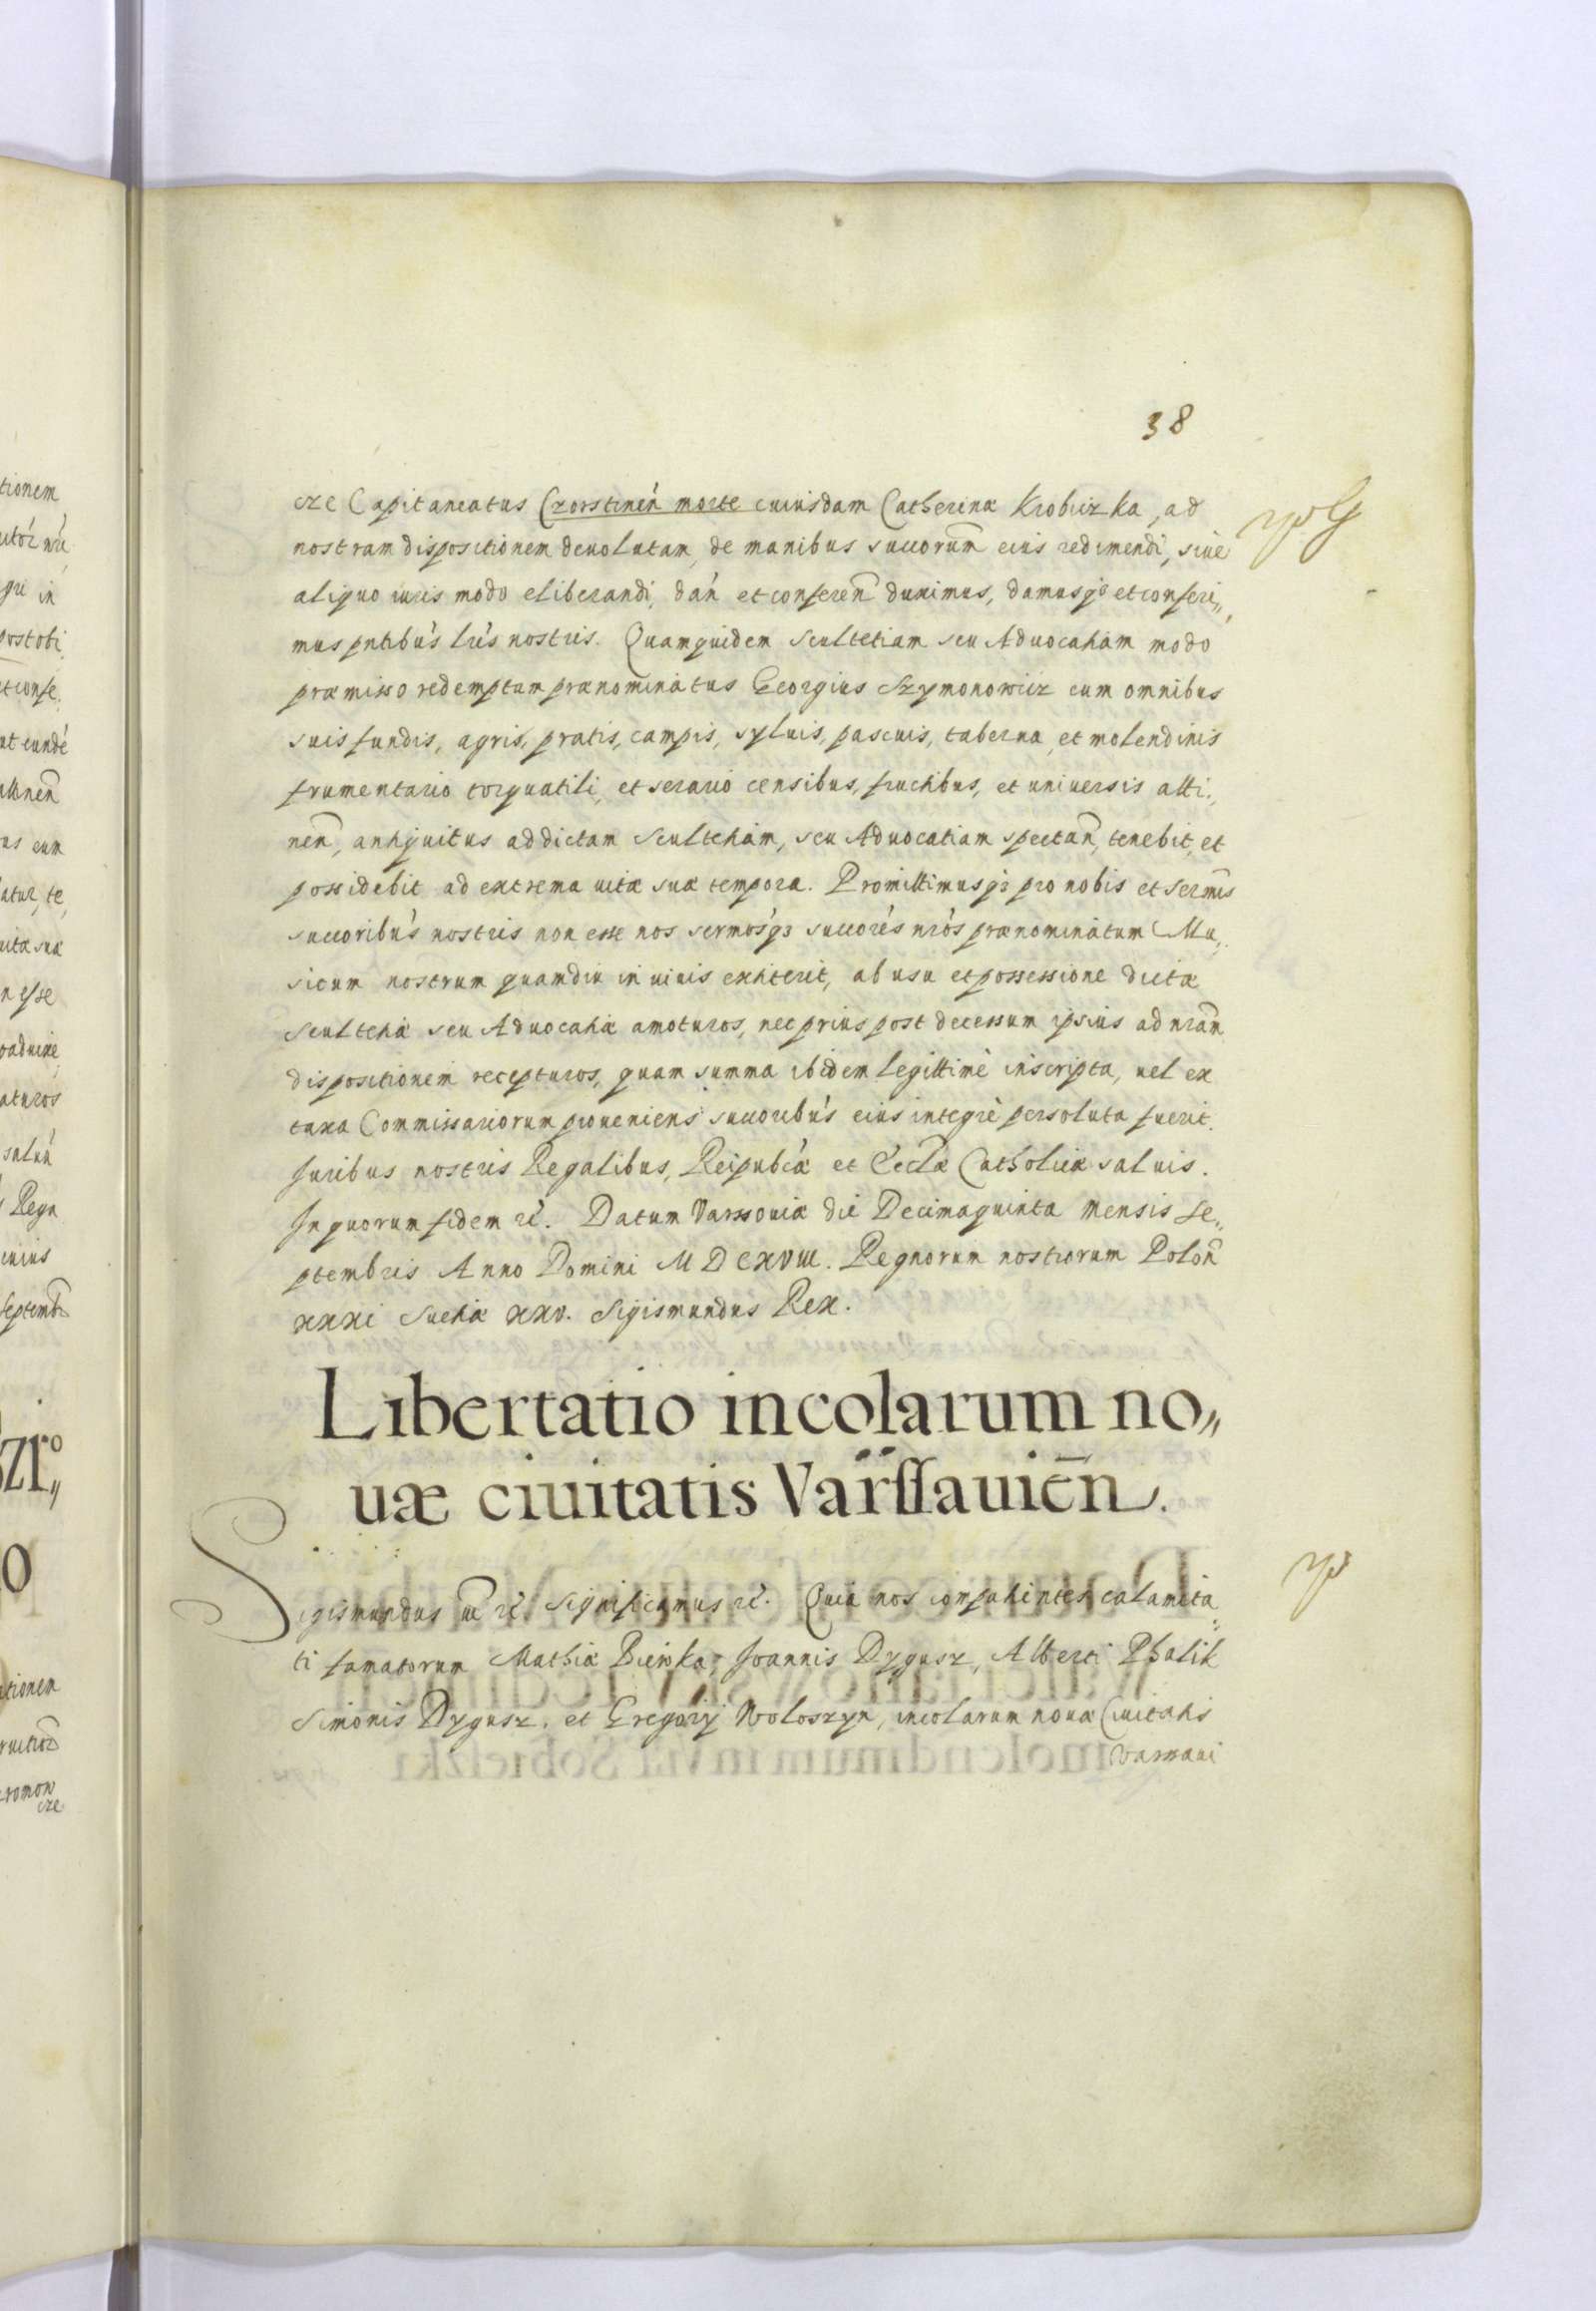 38
cze Capitaneatus Czorstinen̄ morte cuiusdam Catherinæ Krobiczka, ad
nostram dispositionem deuolutam, de manibus succorum̄ eius redimendi, siue
aliquo iuris modo eliberandi, dań et conferen̄ duximus, damusq3 et conferi„
mus pntibús lrís nostris. Quamquidem Scultetiam seu Aduocatiam modo
præmisso redemptam prænominatus Georgius Szymonowicz cum omnibus
suis fundis, agris, pratis, campis, syluis, pascuis, taberna, et molendinis
frumentario torquatili, et serario censibus, fructibus, et uniuersis atti„
nen̄, antiquitus ad dictam Scultetiam, seu Aduocatiam spectan̄, tenebit, et
possidebit ad extrema uitæ suæ tempora. Promittimusq3 pro nobis et Sermis̄
succoribús nostris non esse nos sermosq́3 succorés nrós prænominatum Mu„
sicum nostrum quamdiu in uiuis extiterit, ab usu et possessione dictæ
Scultetiæ seu Aduocatiæ amoturos, nec prius post decessum ipsius ad nram̄
dispositionem recepturos, quam summa ibidem legittimè inscripta, uel ex
taxa Commissariorum proueniens succoribús eius integrè persoluta fuerit.
Juribus nostris Regalibus, Reipubcæ et Eccłæ Catholicæ saluis.
In quorum fidem rc. Datum Varssouiæ die Decimaquinta Mensis Se„
ptembris Anno Domini MDCXVIII. Regnorum nostrorum Polon̄
xxxi Sueciæ xxv. Sigismundus Rex.
Libertatio incolarum no„
uæ ciuitatis Varssauien̄.
Sigismundus uc̄ rc. Significamus rc. Quia nos compatientes calamita„
ti famatorum Mathiæ Bieńka, Joannis Dygusz, Alberti Phalik
Simonis Dygusz, et Gregorij Wołoszyn, incolarum nouæ Ciuitatis
Varssaui